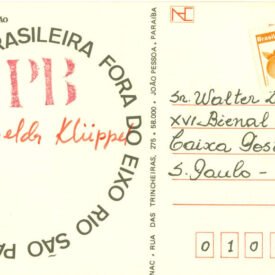 ÃO
BRASILEIRA FORA DO EIXO RIO SÃO PA
PB
Klüppel
NAC · RUA DAS TRINCHEIRAS, 275 · 58.000 · JOÃO PESSOA, PARAÍBA
Brasil
Sr. Walter
XVI Bienal
Caixa Pos
S. Paulo -
0 1 0